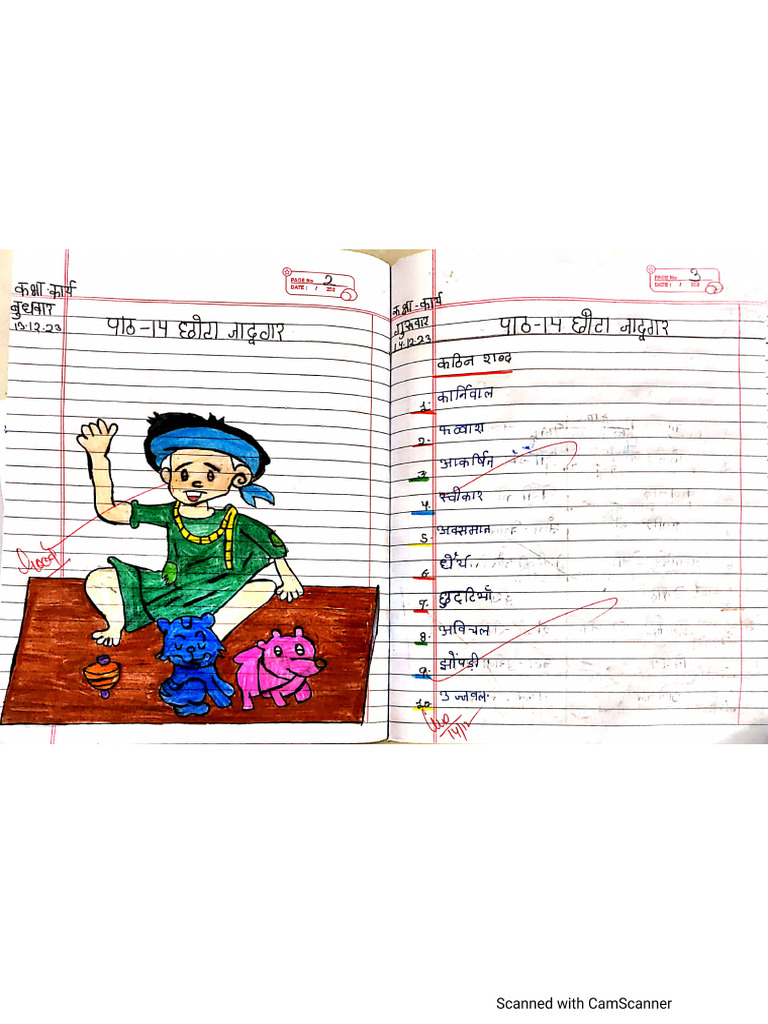 कक्षा-कार्य
बुधवार
13.12.23
PAGE No. 2
DATE: / / 202
पाठ-१४ छोटा जादूगर
Good
कक्षा-कार्य
गुरुवार
14.12.23
PAGE No. 3
DATE: / / 202
पाठ-१४ छोटा जादूगर
कठिन शब्द
1. कार्निवाल
2. फव्वारा
3. आकर्षित
4. स्वीकार
5. अक्समात
6. धैर्य
7. छुट्टियाँ
8. अविचल
9. झोंपड़ी
10. उज्जवल
14/12
Scanned with CamScanner